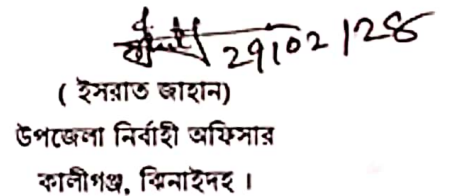 29/02/28
( ইসরাত জাহান)
উপজেলা নির্বাহী অফিসার
কালীগঞ্জ, ঝিনাইদহ ।